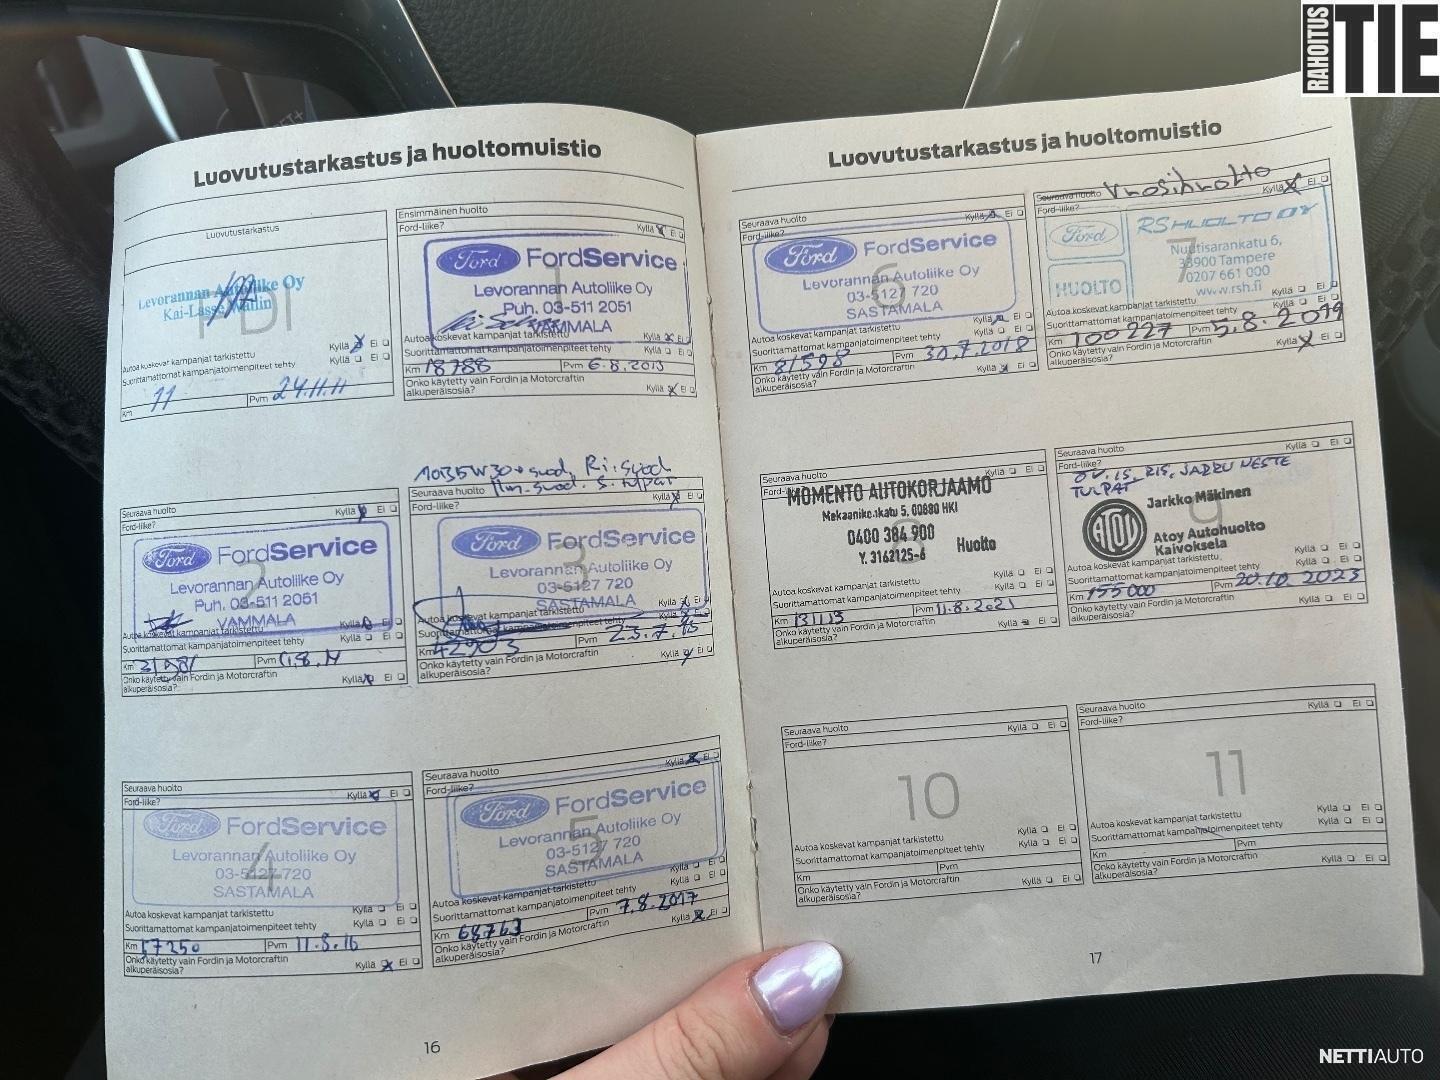 RAHOITUS
TIE
Luovutustarkastus ja huoltomuistio
Luovutustarkastus
PDI
Levorannan Autoliike Oy
Kai-Lasse Wallin
Autoa koskevat kampanjat tarkistettu Kyllä Ei
Suorittamattomat kampanjatoimenpiteet tehty Kyllä Ei
Km 11 Pvm 24.11.11
Ensimmäinen huolto
Ford-liike? Kyllä Ei
1
Ford FordService
Levorannan Autoliike Oy
Puh. 03-511 2051
VAMMALA
Autoa koskevat kampanjat tarkistettu Kyllä Ei
Suorittamattomat kampanjatoimenpiteet tehty Kyllä Ei
Km 18788 Pvm 6.8.2013
Onko käytetty vain Fordin ja Motorcraftin
alkuperäisosia? Kyllä Ei
Seuraava huolto
Ford-liike? Kyllä Ei
2
Ford FordService
Levorannan Autoliike Oy
Puh. 03-511 2051
VAMMALA
Autoa koskevat kampanjat tarkistettu Kyllä Ei
Suorittamattomat kampanjatoimenpiteet tehty Kyllä Ei
Km Pvm
Onko käytetty vain Fordin ja Motorcraftin
alkuperäisosia? Kyllä Ei
Seuraava huolto Kyllä
3
Ford FordService
Levorannan Autoliike Oy
03-5127 720
SASTAMALA
Autoa koskevat kampanjat tarkistettu Kyllä
Suorittamattomat
Km 42903 Pvm 23.7.15
Onko käytetty vain Fordin ja Motorcraftin
alkuperäisosia? Kyllä Ei
Seuraava huolto
Ford-liike? Kyllä Ei
4
Ford FordService
Levorannan Autoliike Oy
03-5127 720
SASTAMALA
Autoa koskevat kampanjat tarkistettu Kyllä Ei
Suorittamattomat kampanjatoimenpiteet tehty Kyllä Ei
Km 57250 Pvm 11.8.16
Onko käytetty vain Fordin ja Motorcraftin
alkuperäisosia? Kyllä Ei
Seuraava huolto
Ford-liike? Kyllä Ei
5
Ford FordService
Levorannan Autoliike Oy
03-5127 720
SASTAMALA
Autoa koskevat kampanjat tarkistettu Kyllä Ei
Suorittamattomat kampanjatoimenpiteet tehty Kyllä Ei
Km 68763 Pvm 7.8.2017
Onko käytetty vain Fordin ja Motorcraftin
alkuperäisosia? Kyllä Ei
16
Luovutustarkastus ja huoltomuistio
Seuraava huolto
Ford-liike? Kyllä Ei
6
Ford FordService
Levorannan Autoliike Oy
03-5127 720
SASTAMALA
Autoa koskevat kampanjat tarkistettu Kyllä Ei
Suorittamattomat kampanjatoimenpiteet tehty Kyllä Ei
Km 81598 Pvm 30.7.2018
Onko käytetty vain Fordin ja Motorcraftin
alkuperäisosia? Kyllä Ei
Seuraava huolto Vuosihuolto
Ford-liike? Kyllä Ei
7
Ford RS HUOLTO OY
Nuutisarankatu 6,
33900 Tampere
0207 661 000
HUOLTO www.rsh.fi
Autoa koskevat kampanjat tarkistettu Kyllä Ei
Suorittamattomat kampanjatoimenpiteet tehty Kyllä Ei
Km 100227 Pvm 5.8.2019
Onko käytetty vain Fordin ja Motorcraftin
alkuperäisosia? Kyllä Ei
Seuraava huolto
Ford- Kyllä Ei
MOMENTO AUTOKORJAAMO
Mekaanikonkatu 5, 00880 HKI
0400 384 900
Y. 3162125-6 Huolto
Autoa koskevat kampanjat tarkistettu Kyllä Ei
Suorittamattomat kampanjatoimenpiteet tehty Kyllä Ei
Km 131119 Pvm 11.8.2021
Onko käytetty vain Fordin ja Motorcraftin
alkuperäisosia? Kyllä Ei
Seuraava huolto
Ford-liike? Kyllä Ei
JARRU NESTE
TULPAT
9
Jarkko Mäkinen
ATOY Atoy Autohuolto
Kaivoksela
Autoa koskevat kampanjat tarkistettu Kyllä Ei
Suorittamattomat kampanjatoimenpiteet tehty Kyllä Ei
Km 155000 Pvm 20.10.2023
Onko käytetty vain Fordin ja Motorcraftin
alkuperäisosia? Kyllä Ei
Seuraava huolto
Ford-liike? Kyllä Ei
10
Autoa koskevat kampanjat tarkistettu Kyllä Ei
Suorittamattomat kampanjatoimenpiteet tehty Kyllä Ei
Km Pvm
Onko käytetty vain Fordin ja Motorcraftin
alkuperäisosia? Kyllä Ei
Seuraava huolto
Ford-liike? Kyllä Ei
11
Autoa koskevat kampanjat tarkistettu Kyllä Ei
Suorittamattomat kampanjatoimenpiteet tehty Kyllä Ei
Km Pvm
Onko käytetty vain Fordin ja Motorcraftin
alkuperäisosia? Kyllä Ei
17
NETTIAUTO